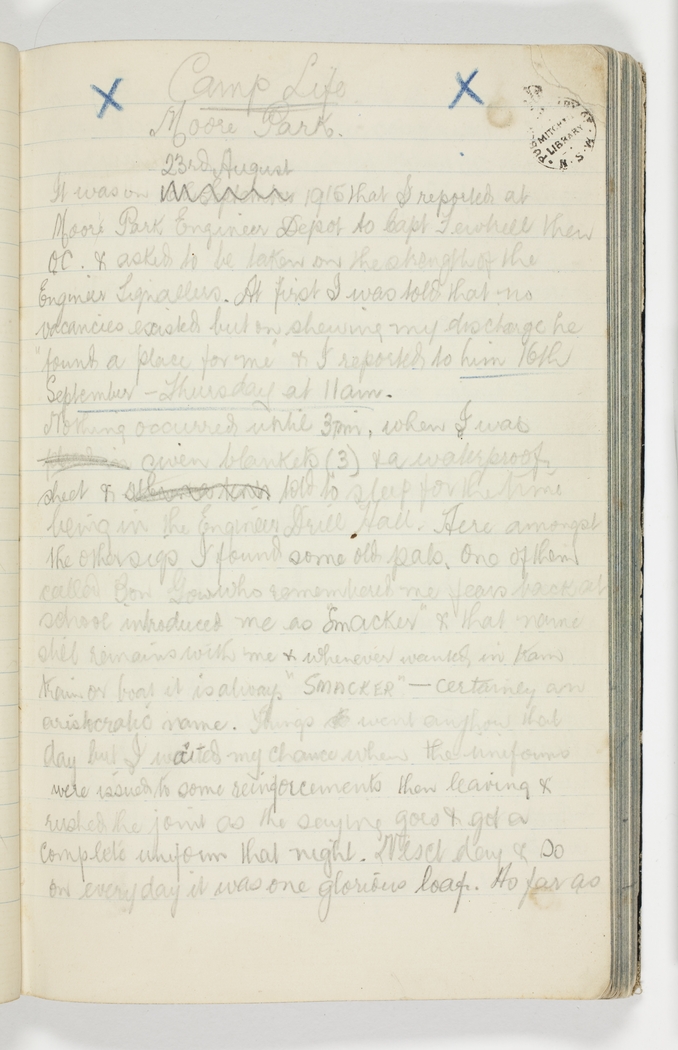 Camp Life
Moore Park.
PUBLIC LIBRARY OF N.S.W.
MITCHELL
LIBRARY
23rd August
It was on 1915 that I reported at
Moore Park Engineer Depot to Capt then
OC. & asked to be taken on the strength of the
Engineer Signallers. At first I was told that no
vacancies existed but on shewing my discharge he
"found a place for me" & I reported to him 16th
September - Thursday at 11am.
Nothing occurred until 3pm, when I was
given blankets (3) & a waterproof
sheet & told to sleep for the time
being in the Engineer Drill Hall. Here amongst
the other sigs I found some old pals, one of them
called Gow who remembered me years back at
school introduced me as "Smacker" & that name
still remains with me & whenever wanted, in tram
train or boat it is always "SMACKER" - certainly an
aristocratic name. Things went anyhow that
day but I waited my chance when the uniforms
were issued to some reinforcements then leaving &
rushed the joint as the saying goes & got a
complete uniform that night. Next day & so
on every day it was one glorious loaf. As far as